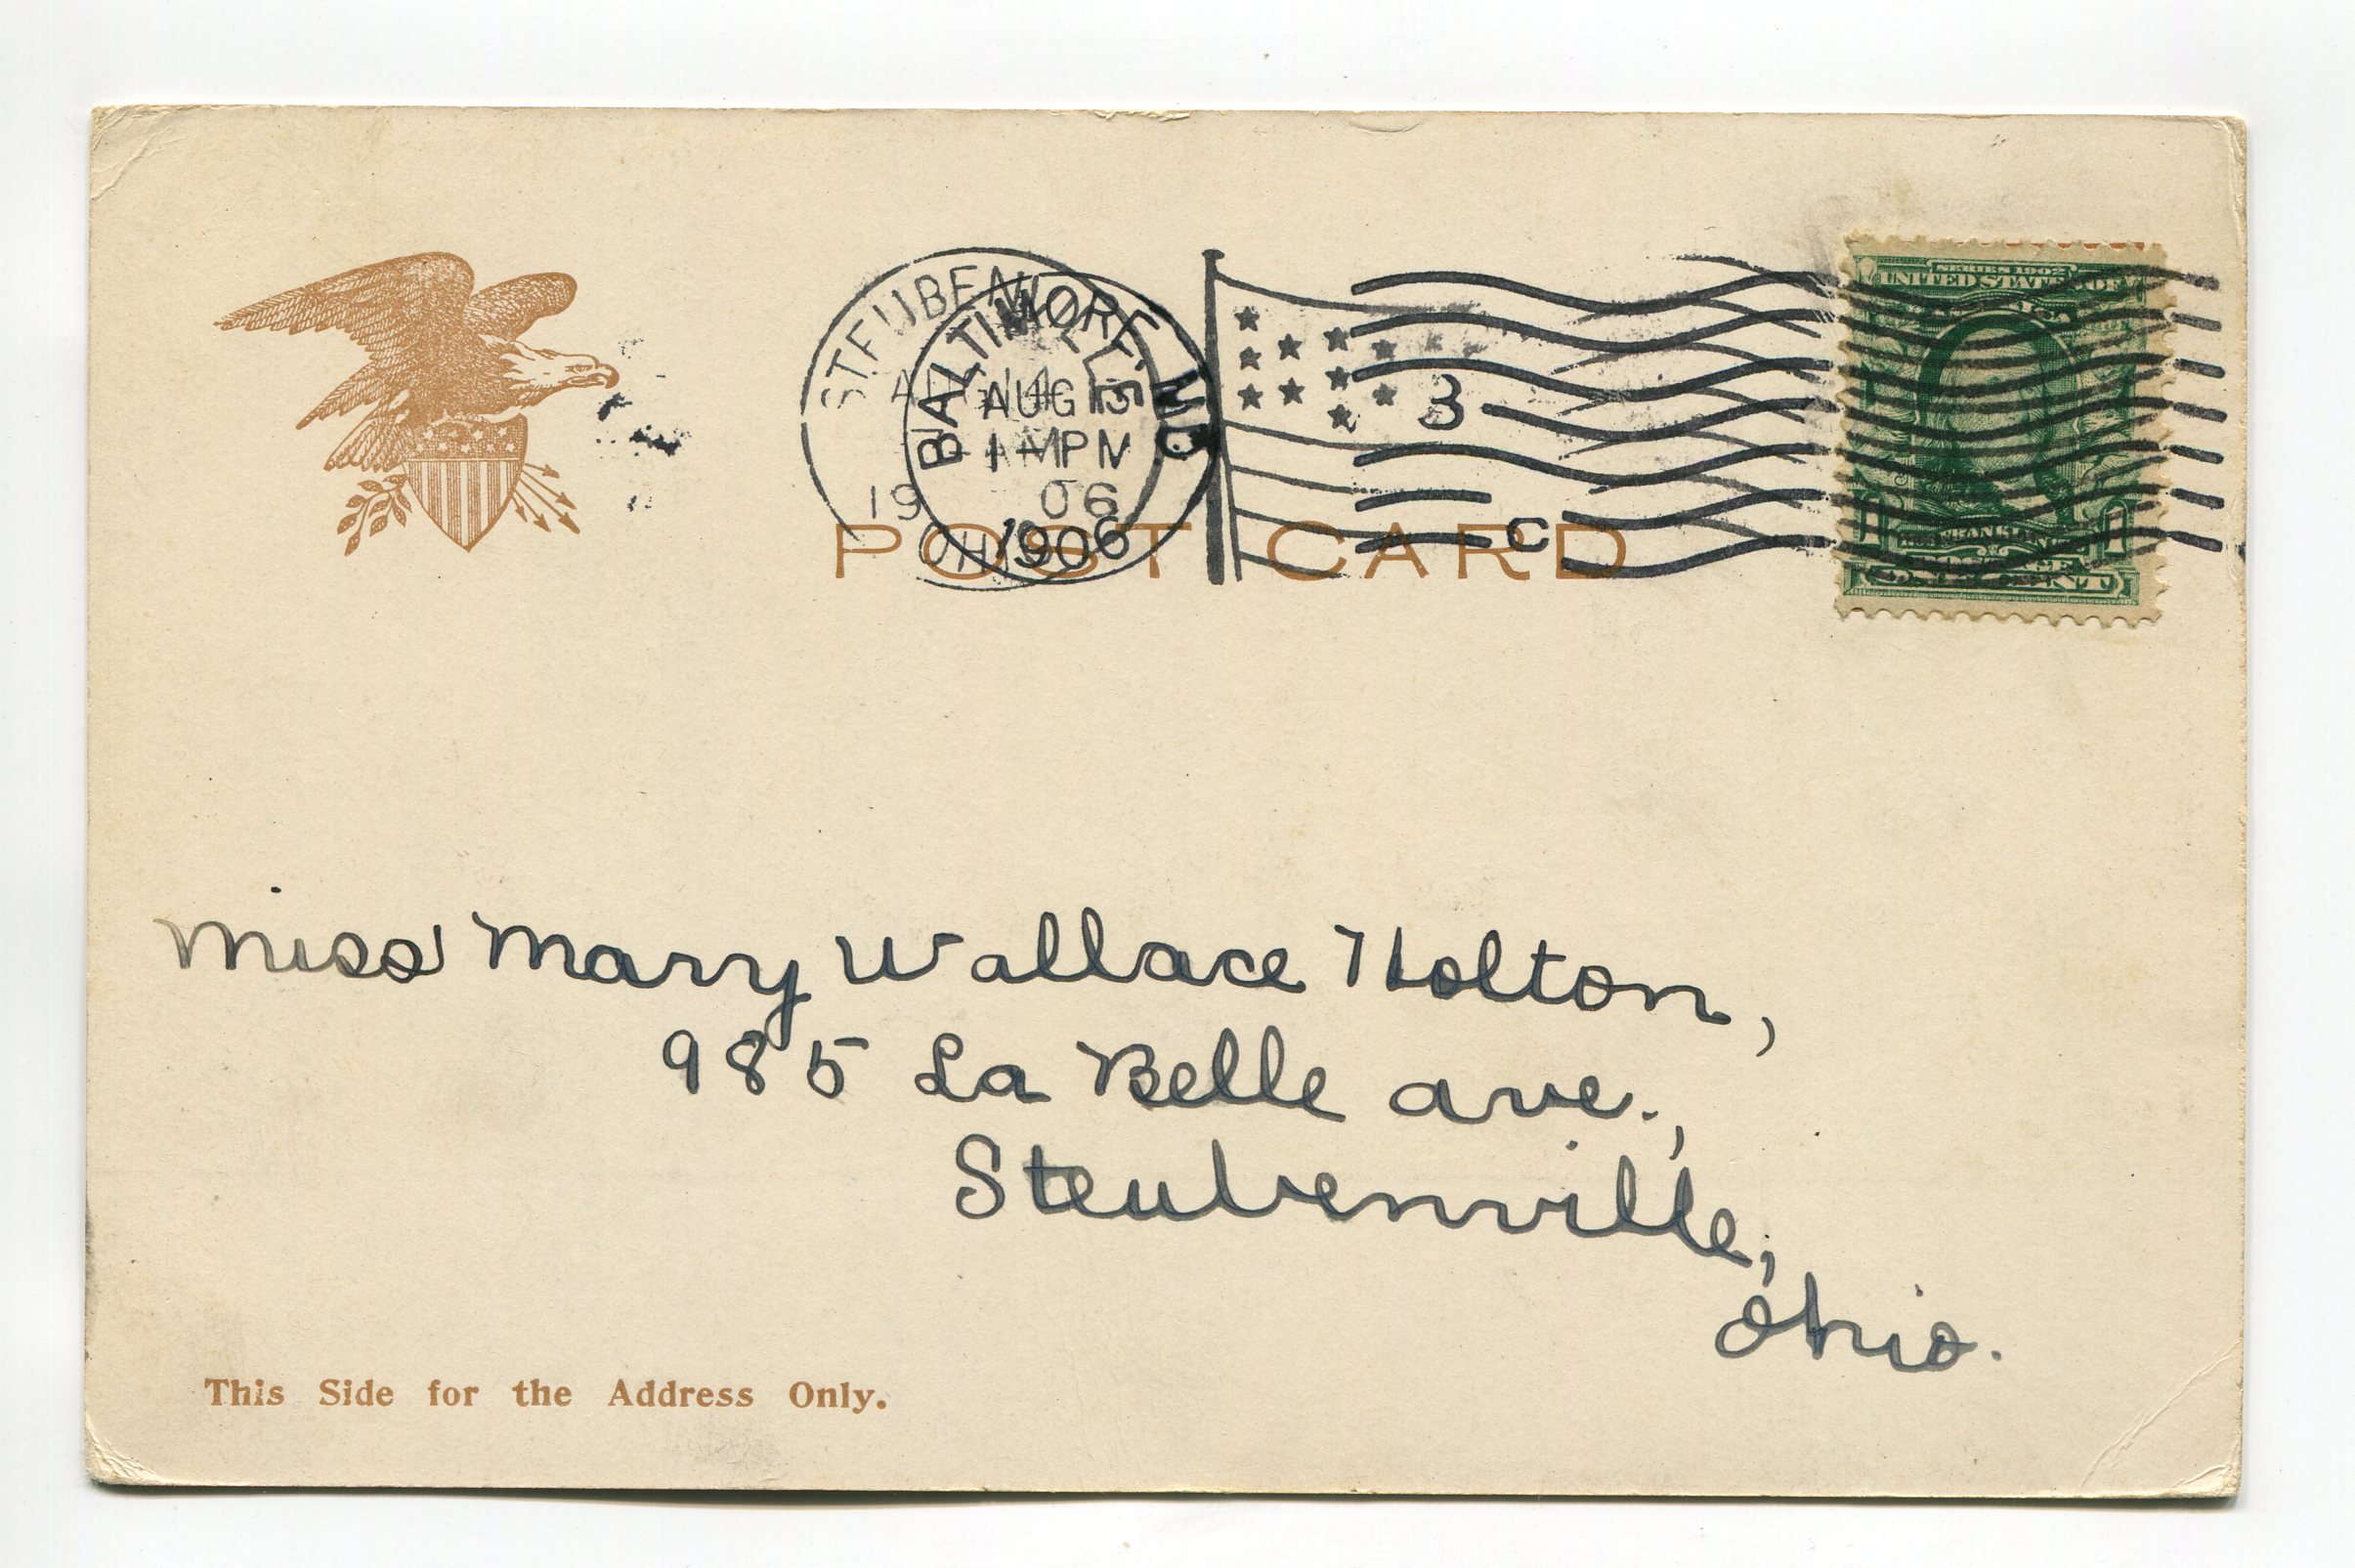 STEUBENVILLE
AUG 14
19 06
OHIO
BALTIMORE, MD
AUG 13
1 PM
1906
3
C
POST CARD
SERIES 1902
UNITED STATES OF
1 1
Miss Mary Wallace Holton,
985 La Belle ave.,
Steubenville,
Ohio.
This Side for the Address Only.